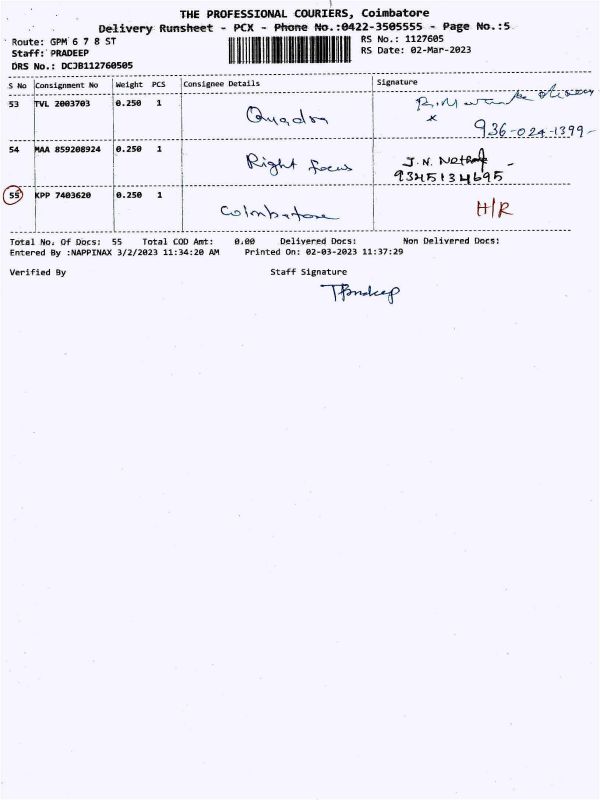 THE PROFESSIONAL COURIERS, Coimbatore
Delivery Runsheet - PCX - Phone No.:0422-3505555 - Page No.:5
Route: GPM 6 7 8 ST
RS No.: 1127605
Staff: PRADEEP
RS Date: 02-Mar-2023
DRS No.: DCJB112760505
S No Consignment No Weight PCS Consignee Details Signature
53 TVL 2003703 0.250 1 Quadra
936-024-1399-
54 MAA 859208924 0.250 1 Right focus J.N.
9345134695
55 KPP 7403620 0.250 1 Coimbatore H/R
Total No. Of Docs: 55 Total COD Amt: 0.00 Delivered Docs: Non Delivered Docs:
Entered By :NAPPINAX 3/2/2023 11:34:20 AM Printed On: 02-03-2023 11:37:29
Verified By Staff Signature